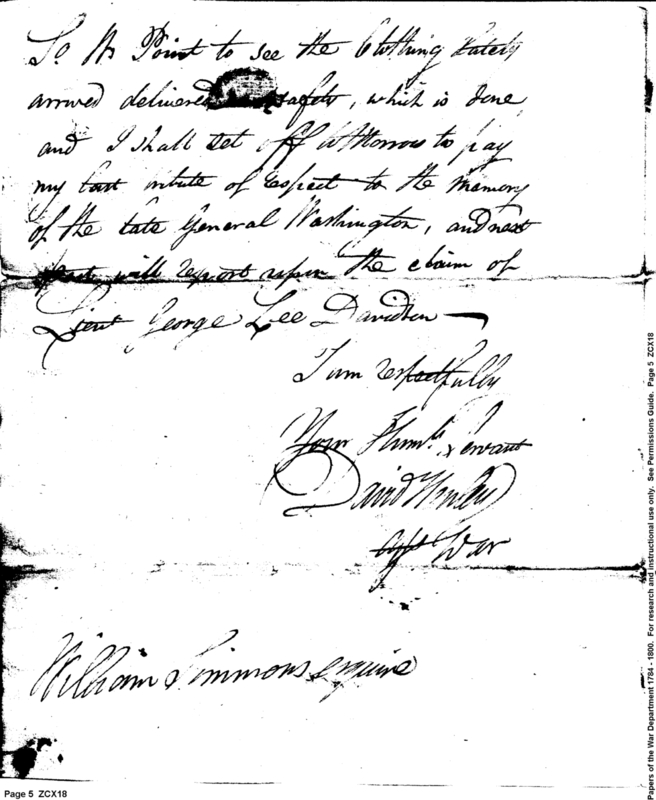 So W Point to see the Clothing lately
arrived delivered safely, which is done,
and I shall set off toMorrow to pay
my last tribute of respect to the memory
of the late General Washington, and next
post will report upon the claim of
Lieut George Lee Davidson —
I am respectfully
Your Humbl Servant
David Henley
Agt War
William Simmons esquire
Page 5 ZCX18
Papers of the War Department 1784 - 1800. For research and instructional use only. See Permissions Guide. Page 5 ZCX18